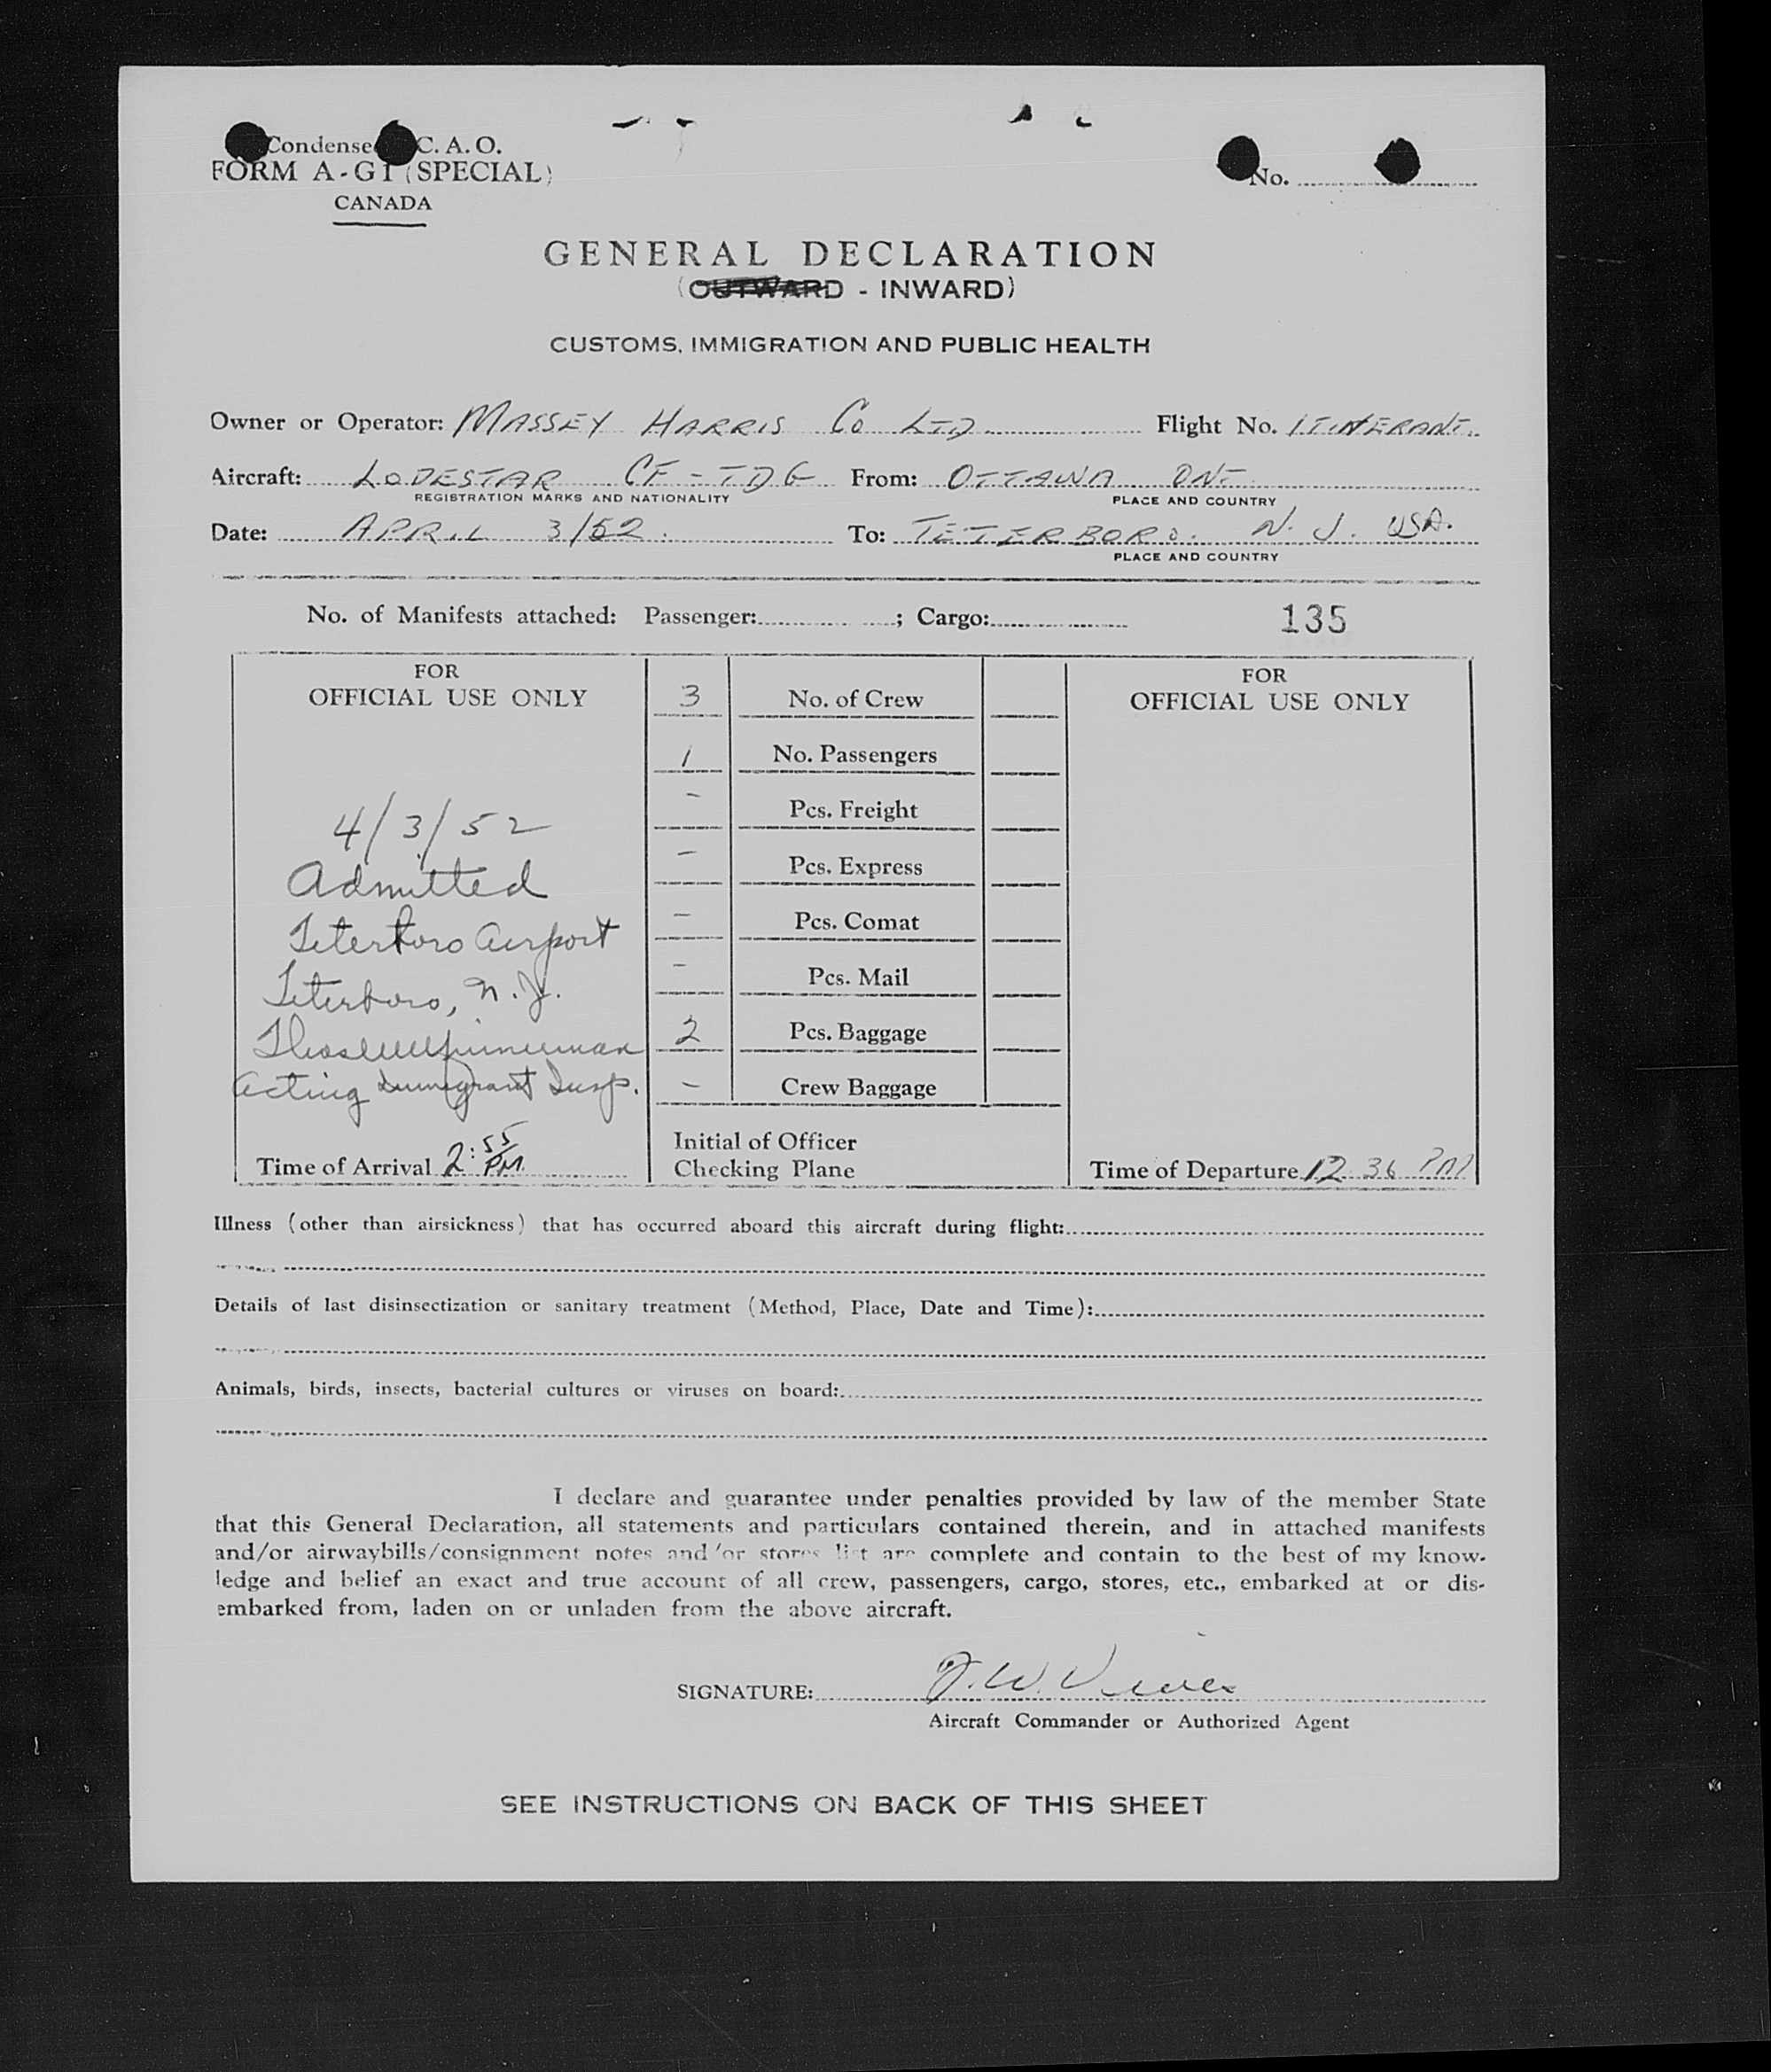 Condense C. A. O.
FORM A-G1 (SPECIAL)
CANADA
No.
GENERAL DECLARATION
(OUTWARD - INWARD)
CUSTOMS, IMMIGRATION AND PUBLIC HEALTH
Owner or Operator: MASSEY HARRIS Co LTD Flight No. ITINERANT.
Aircraft: LODESTAR CF-TDG From: OTTAWA ONT
REGISTRATION MARKS AND NATIONALITY PLACE AND COUNTRY
Date: APRIL 3/52. To: TETERBORO. N. J. USA.
PLACE AND COUNTRY
No. of Manifests attached: Passenger: ; Cargo: 135
FOR
OFFICIAL USE ONLY
4/3/52
Admitted
Teterboro Airport
Teterboro, N.J.
Acting Immigrant Insp.
Time of Arrival 2:55 PM
3 No. of Crew
1 No. Passengers
- Pcs. Freight
- Pcs. Express
- Pcs. Comat
- Pcs. Mail
2 Pcs. Baggage
- Crew Baggage
Initial of Officer
Checking Plane
FOR
OFFICIAL USE ONLY
Time of Departure 12 36 PM
Illness (other than airsickness) that has occurred aboard this aircraft during flight:
Details of last disinsectization or sanitary treatment (Method, Place, Date and Time):
Animals, birds, insects, bacterial cultures or viruses on board:
I declare and guarantee under penalties provided by law of the member State
that this General Declaration, all statements and particulars contained therein, and in attached manifests
and/or airwaybills/consignment notes and/or stores list are complete and contain to the best of my know-
ledge and belief an exact and true account of all crew, passengers, cargo, stores, etc., embarked at or dis-
embarked from, laden on or unladen from the above aircraft.
SIGNATURE: J. W.
Aircraft Commander or Authorized Agent
SEE INSTRUCTIONS ON BACK OF THIS SHEET